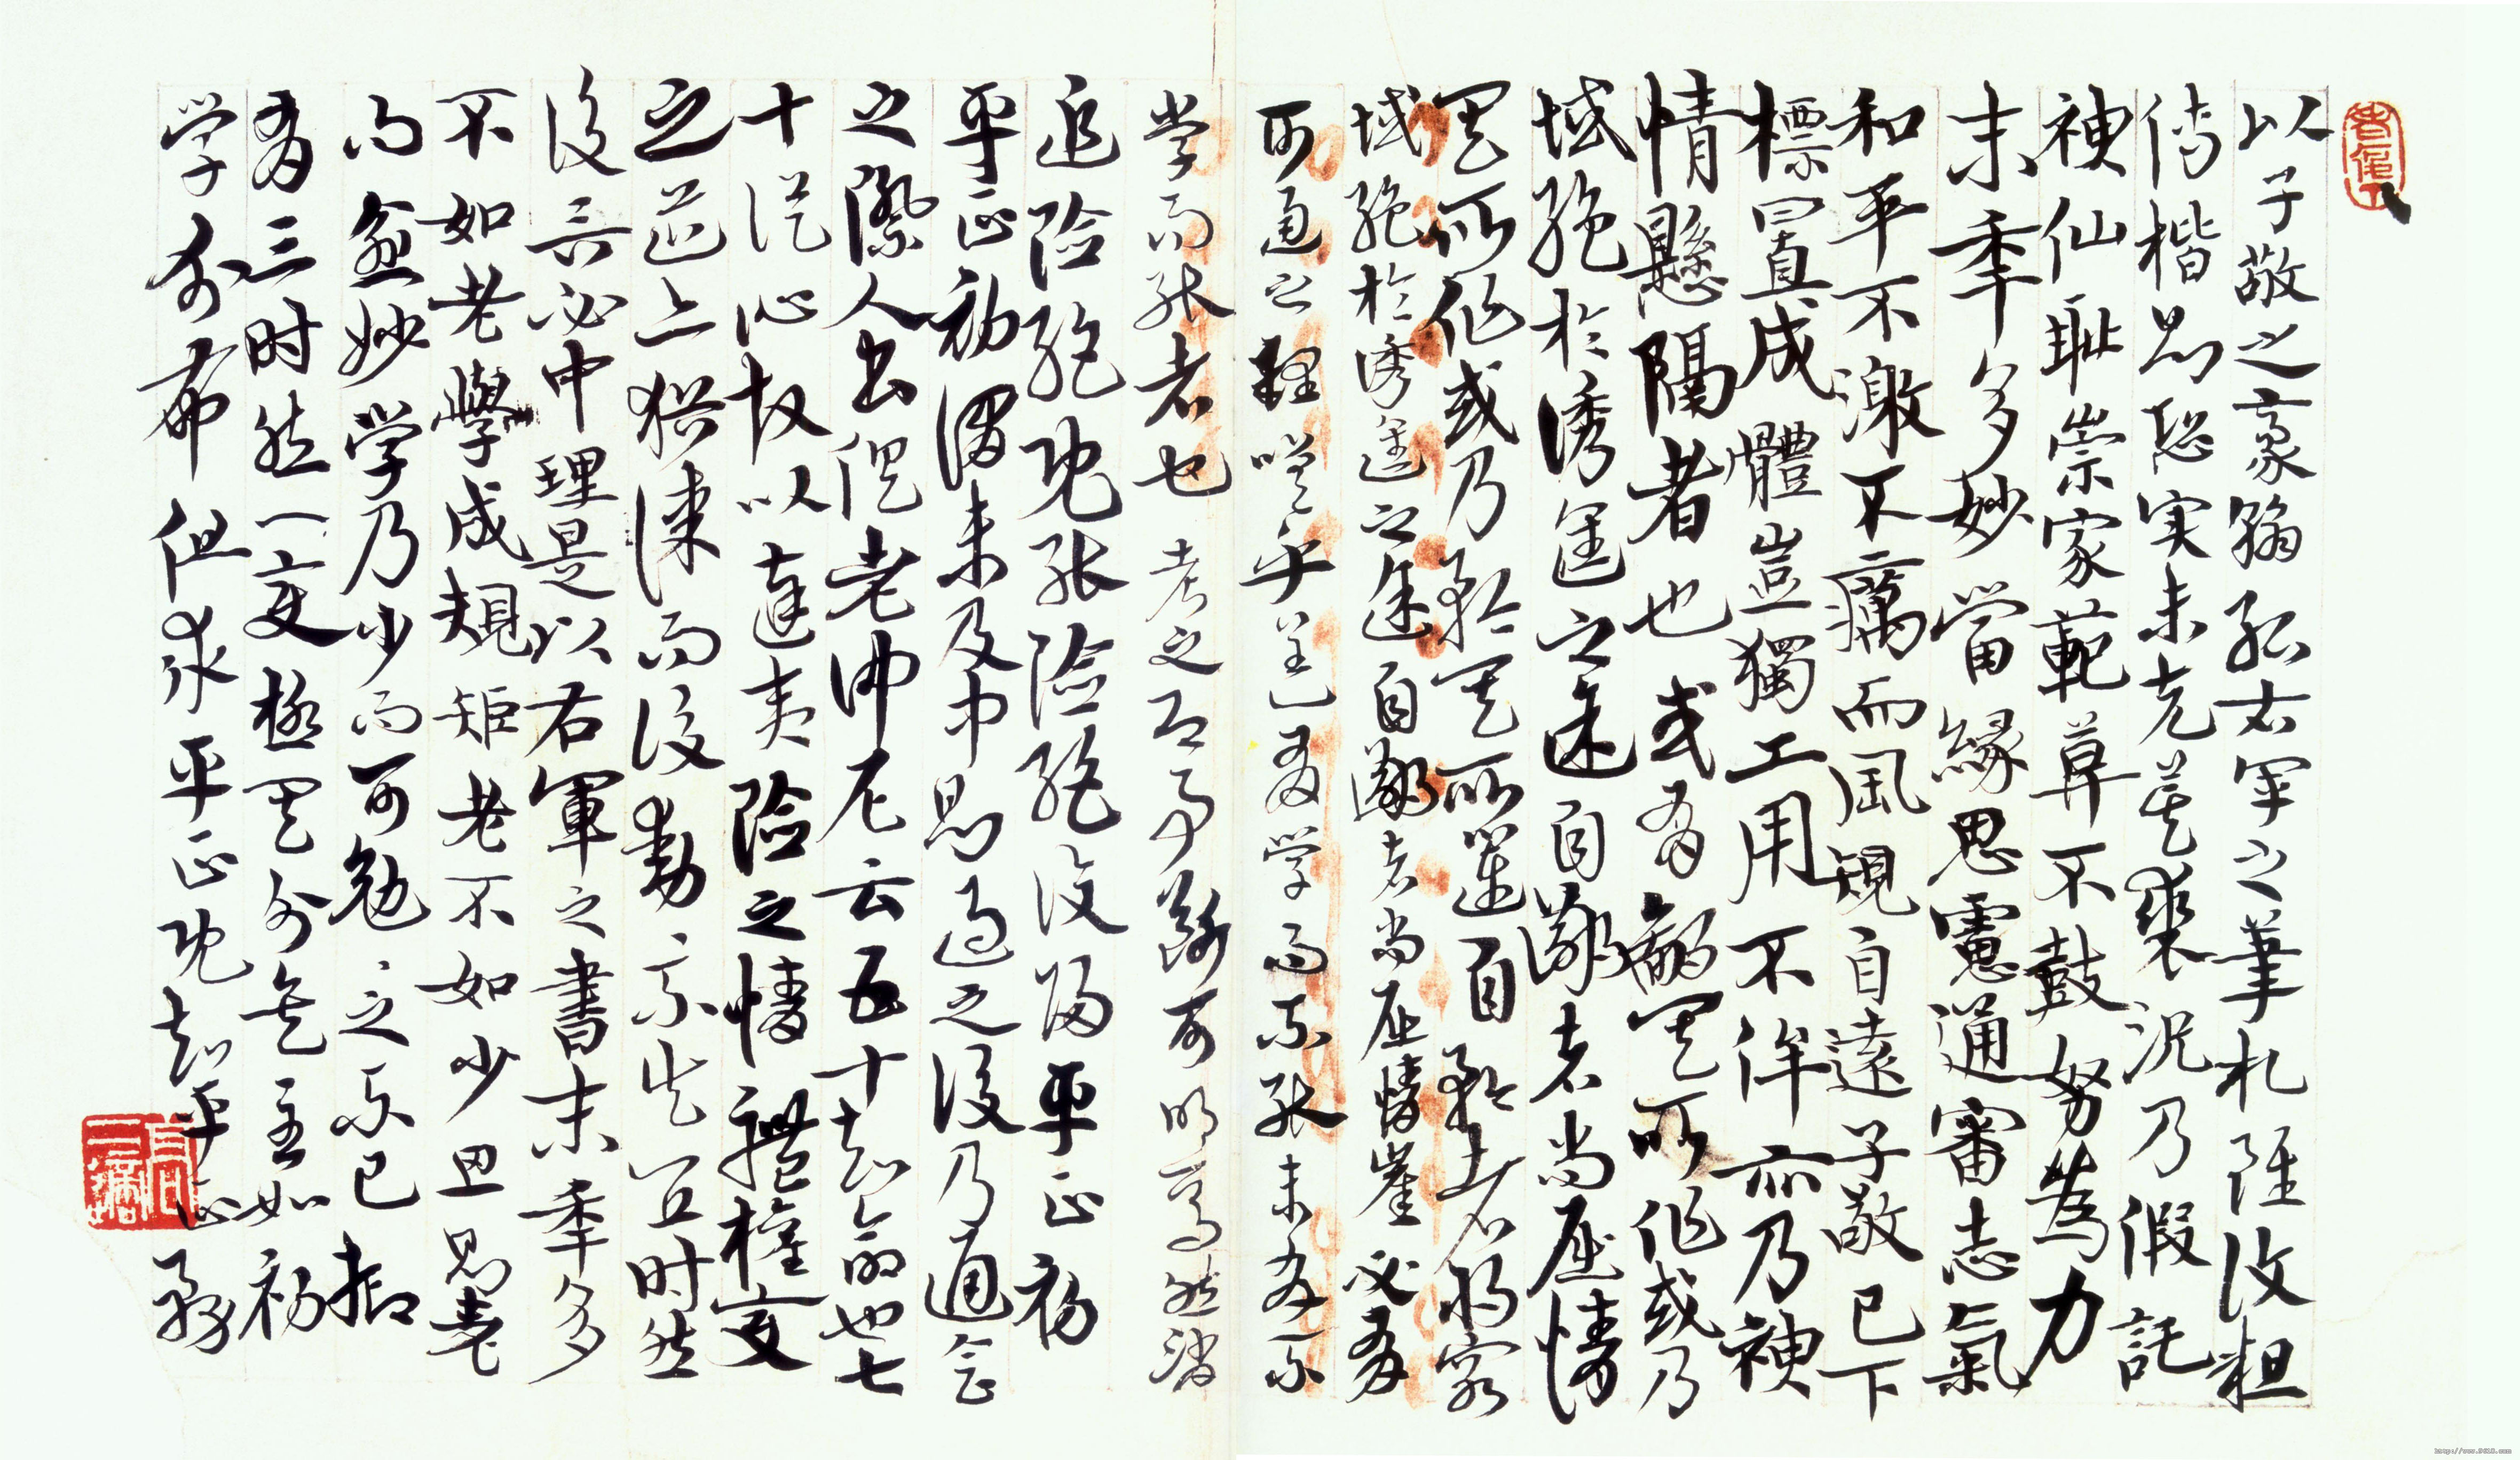 以子敬之豪翰紹右軍之筆札雖復粗
傳楷則恐實未克箕裘況乃假託
神仙恥崇家範草不鼓努為力
末年多妙當緣思慮通審志氣
和平不激不厲而風規自遠子敬已下
標置成體豈獨工用不侔亦乃神
情懸隔者也或有鄙其所作或乃
域絕於誘進之途自鄙者尚屈情
其所作或乃矜其所運自矜者將窮
域絕於誘進之途自鄙者尚屈情崖必有
可通之理嗟乎蓋有學而不能未有不
學而能者也考之即事斷可明焉然消
追險絕既能險絕復歸平正初
平正初謂未及中則過之後乃通會
之際人書俱老仲尼云五十知命也七
十從心故以達夷險之情體權變
之道亦猶謀而後動動不失宜時然
後言必中理是以右軍之書末年多
不如老學成規矩老不如少思則老
而愈妙學乃少而可勉之不已抑
有三時然一變極其分矣至如初
學分布但求平正既知平正務